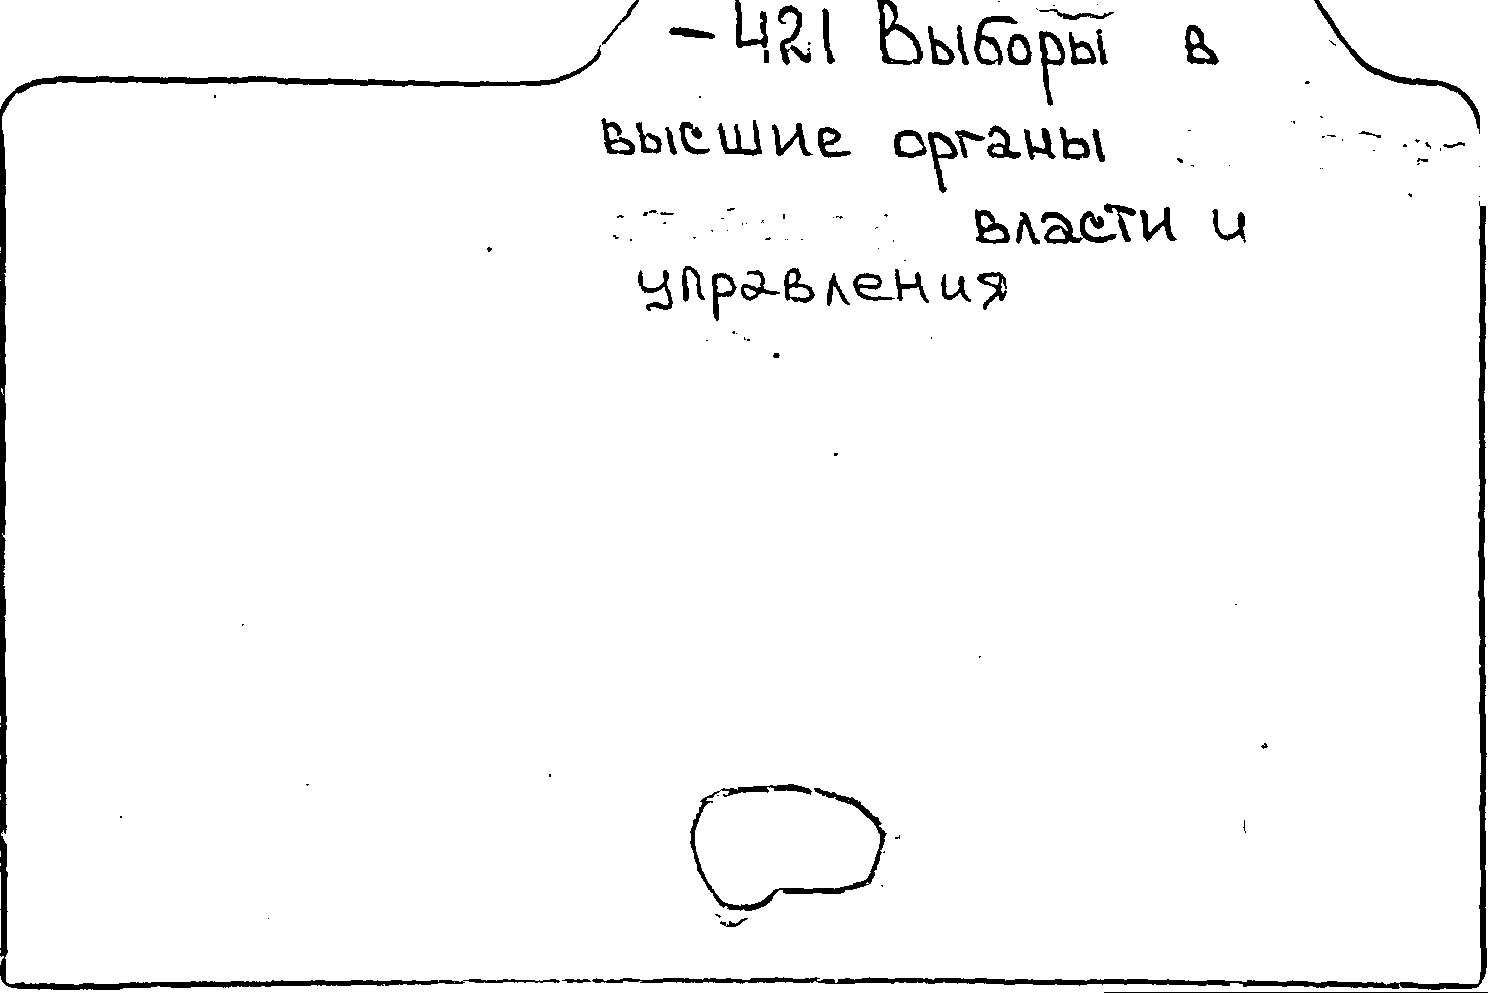 – 421 Выборы в
высшие органы
власти и
управления